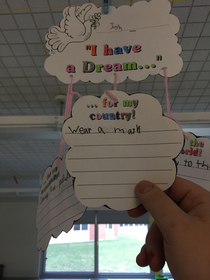 Josh
"I have
a Dream..."
... for my
country!
Wear a mask
the
world?
to th